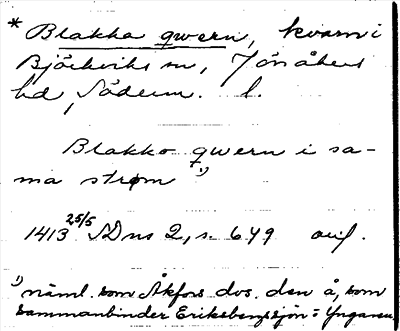 * Blakka qwern, kvarn i
Björkviks sn, Jönåkers
hd, Söderm. l.
Blakko qwern i sa-
ma strøm ¹)
1413 25/5 SDns 2, s. 649 avs.
¹) näml. som Åkfors dvs. den å, som
sammanbinder Eriksbergssjön = Yngaren